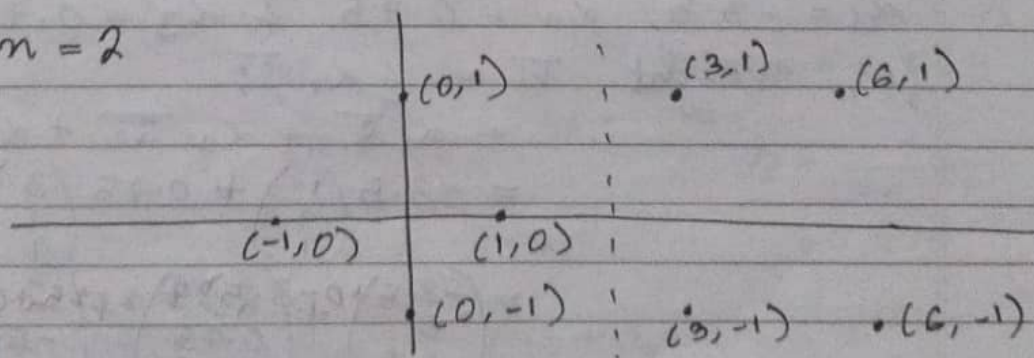 n = 2
(0,1) (3,1) (6,1)
(-1,0) (1,0)
(0,-1) (3,-1) (6,-1)